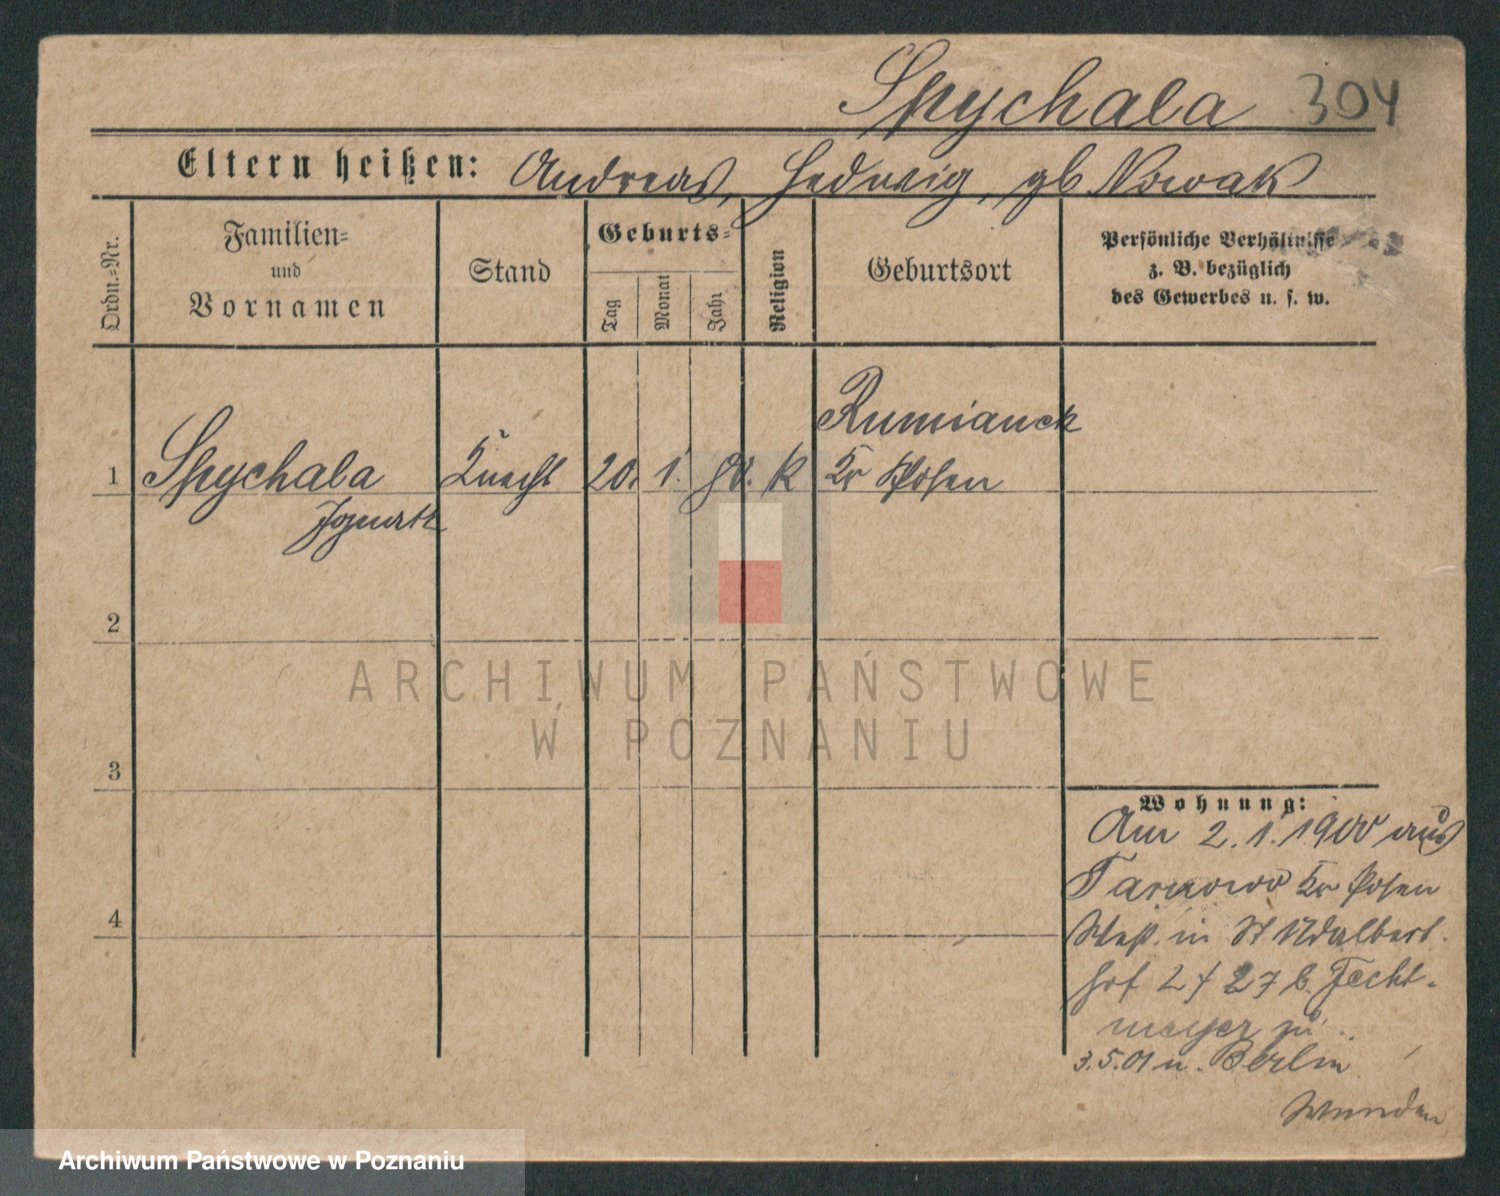 Spychala 304
Eltern heißen: Andreas, Hedwig, gb Nowak
Ordn.=Nr.
Familien=
und
Vornamen
Stand
Geburts=
Tag
Monat
Jahr
Religion
Geburtsort
Persönliche Verhältnisse
z. B. bezüglich
des Gewerbes u. s. w.
Rumianek
1 Spychala Knecht 20. 1. 80. K Kr Posen
Ignatz
2
ARCHIWUM PAŃSTWOWE
W POZNANIU
3
Wohnung:
Am 2.1.1900 aus
Tarnowo Kr Posen
in St Adalbert
27 b. Fecht-
meyer zu
4
3.5.01 n. Berlin
Archiwum Państwowe w Poznaniu